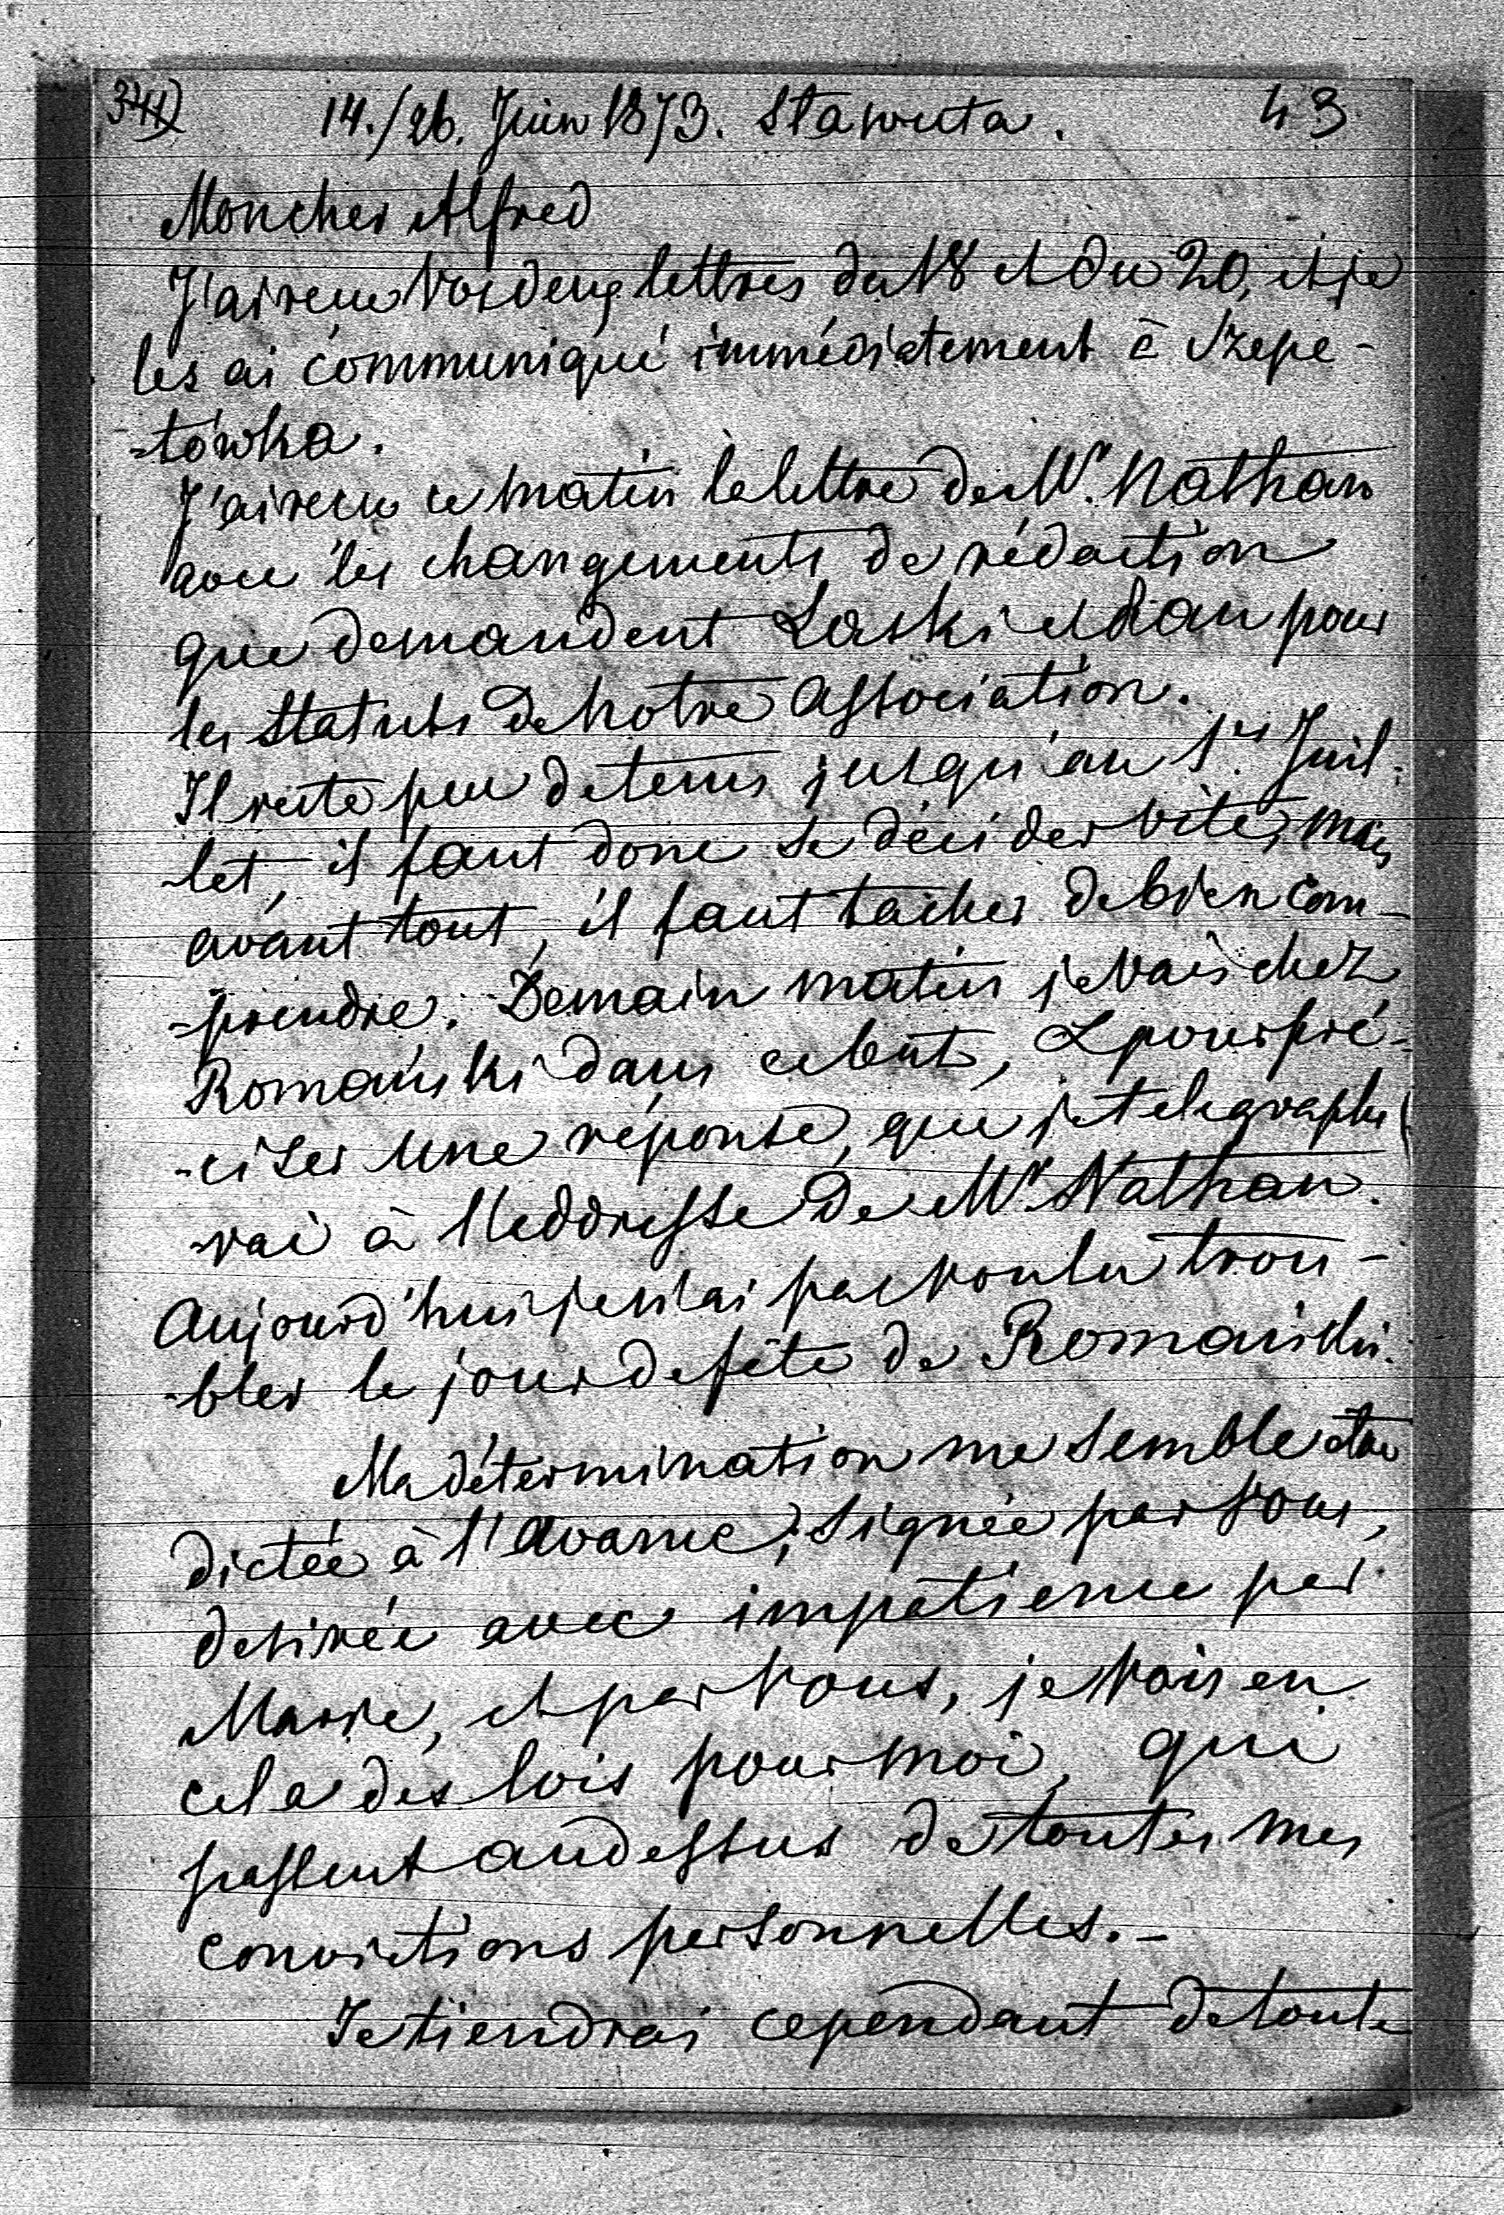 341) 14./26. Juin 1873. Stawuta. 43
Mon cher Alfred
J'ai reçu Vos deux lettres du 18 et du 20, et je
les ai communiqué immédiatement à Szepe-
-tówka.
J'ai reçu ce matin la lettre de Mr. Nathan
avec les changements de rédaction
que demandent Laski et pour
les statuts de notre association.
Il reste peu de tems jusqu'au 1er Juil-
-let, il faut donc se décider vite, mais
avant tout, il faut tacher de bien com-
-prendre. Demain matin je vais chez
Romański dans ce but, & pour pré-
-ciser une réponse, que je telegraphe-
-rai à l'addresse de Mr Nathan.
Aujourd'hui je n'ai pas voulu trou-
-bler le jour de fête de Romański.
Ma détermination me semble être
dictée à l'avance, signée par vous,
desirée avec impatience par
Marie, et par Vous, je vois en
cela des lois pour moi, qui
passent audessus de toutes mes
convictions personnelles.-
Je tiendrai cependant de toute